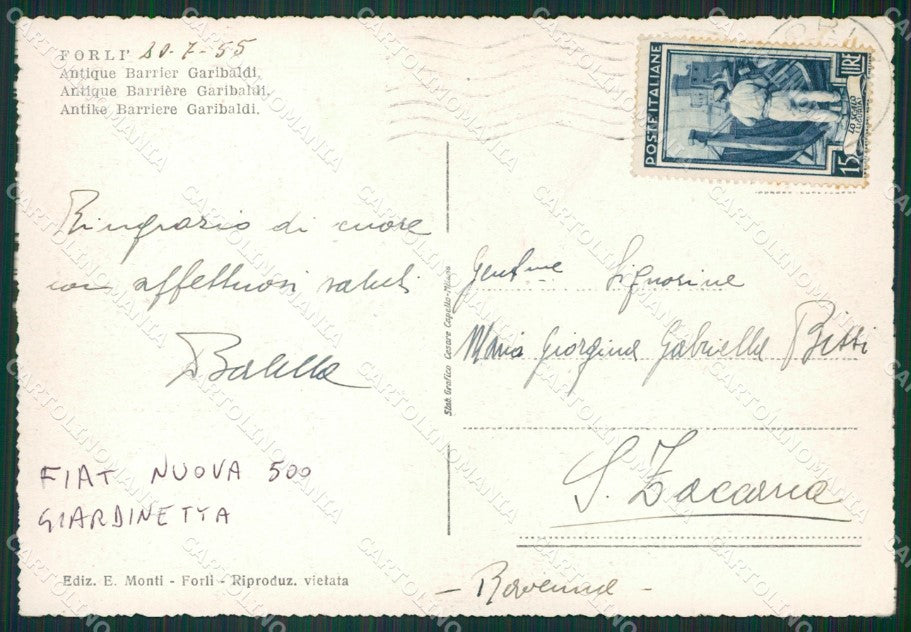 FORLI' 20-7-55
Antique Barrier Garibaldi.
Antique Barrière Garibaldi.
Antike Barriere Garibaldi.
Ringrazio di cuore
con affettuosi saluti
FIAT NUOVA 500
GIARDINETTA
Ediz. E. Monti - Forlì - Riproduz. vietata
Stab. Grafico Cesare Capello - Milano
POSTE ITALIANE
LIRE
15
Gent.me Signorine
Maria Giorgina Gabriella
S. Zaccaria
- Ravenna -
CARTOLINOMANIA